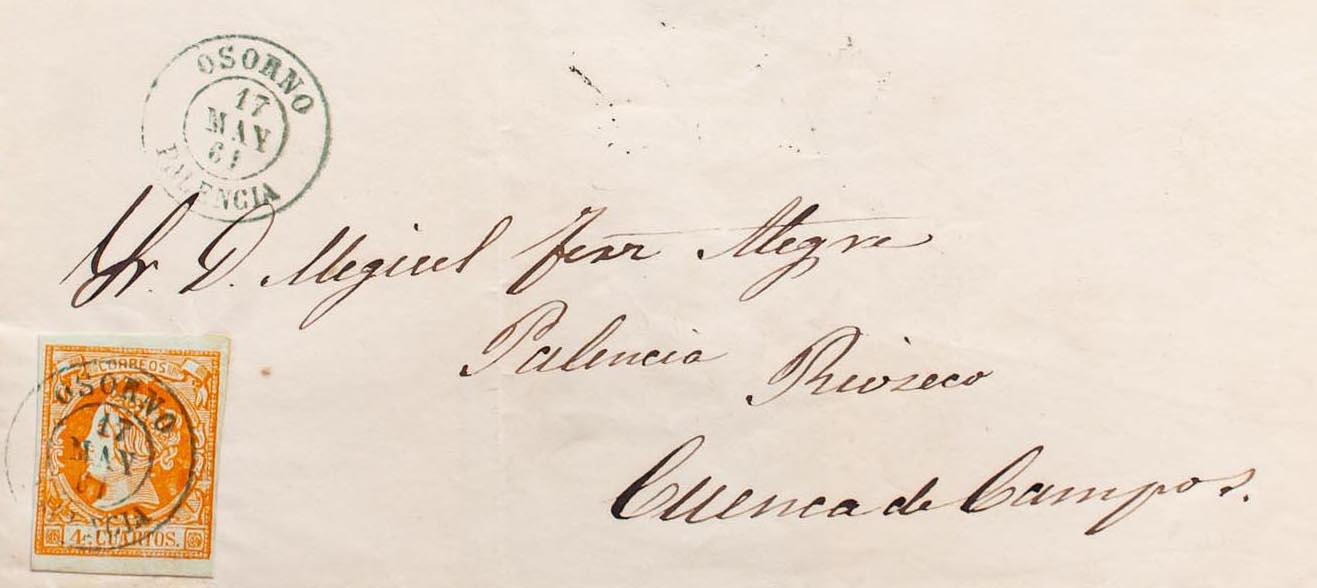 OSORNO
17
MAY
61
PALENCIA
Sr. D. Megicel Fern Alegre
Palencia Rioseco
Cuenca de Campos.
CORREOS
OSORNO
17
MAY
61
4 CUARTOS.